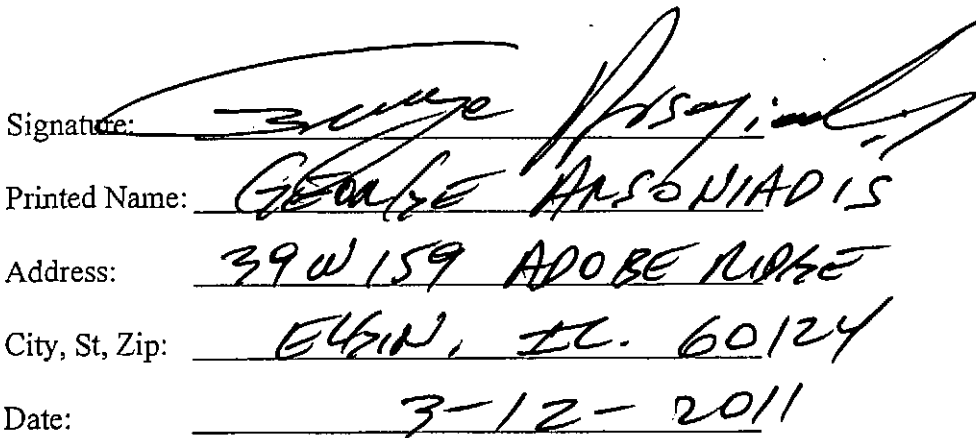 Signature:
Printed Name: GEORGE ARSONIADIS
Address: 39W159 ADOBE RIDGE
City, St, Zip: ELGIN, IL. 60124
Date: 3-12-2011